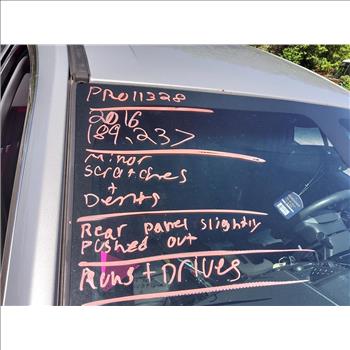 PRO11328
2016
189,237
Minor
scratches
+
Dents
Rear panel slightly
pushed out
Runs + Drives